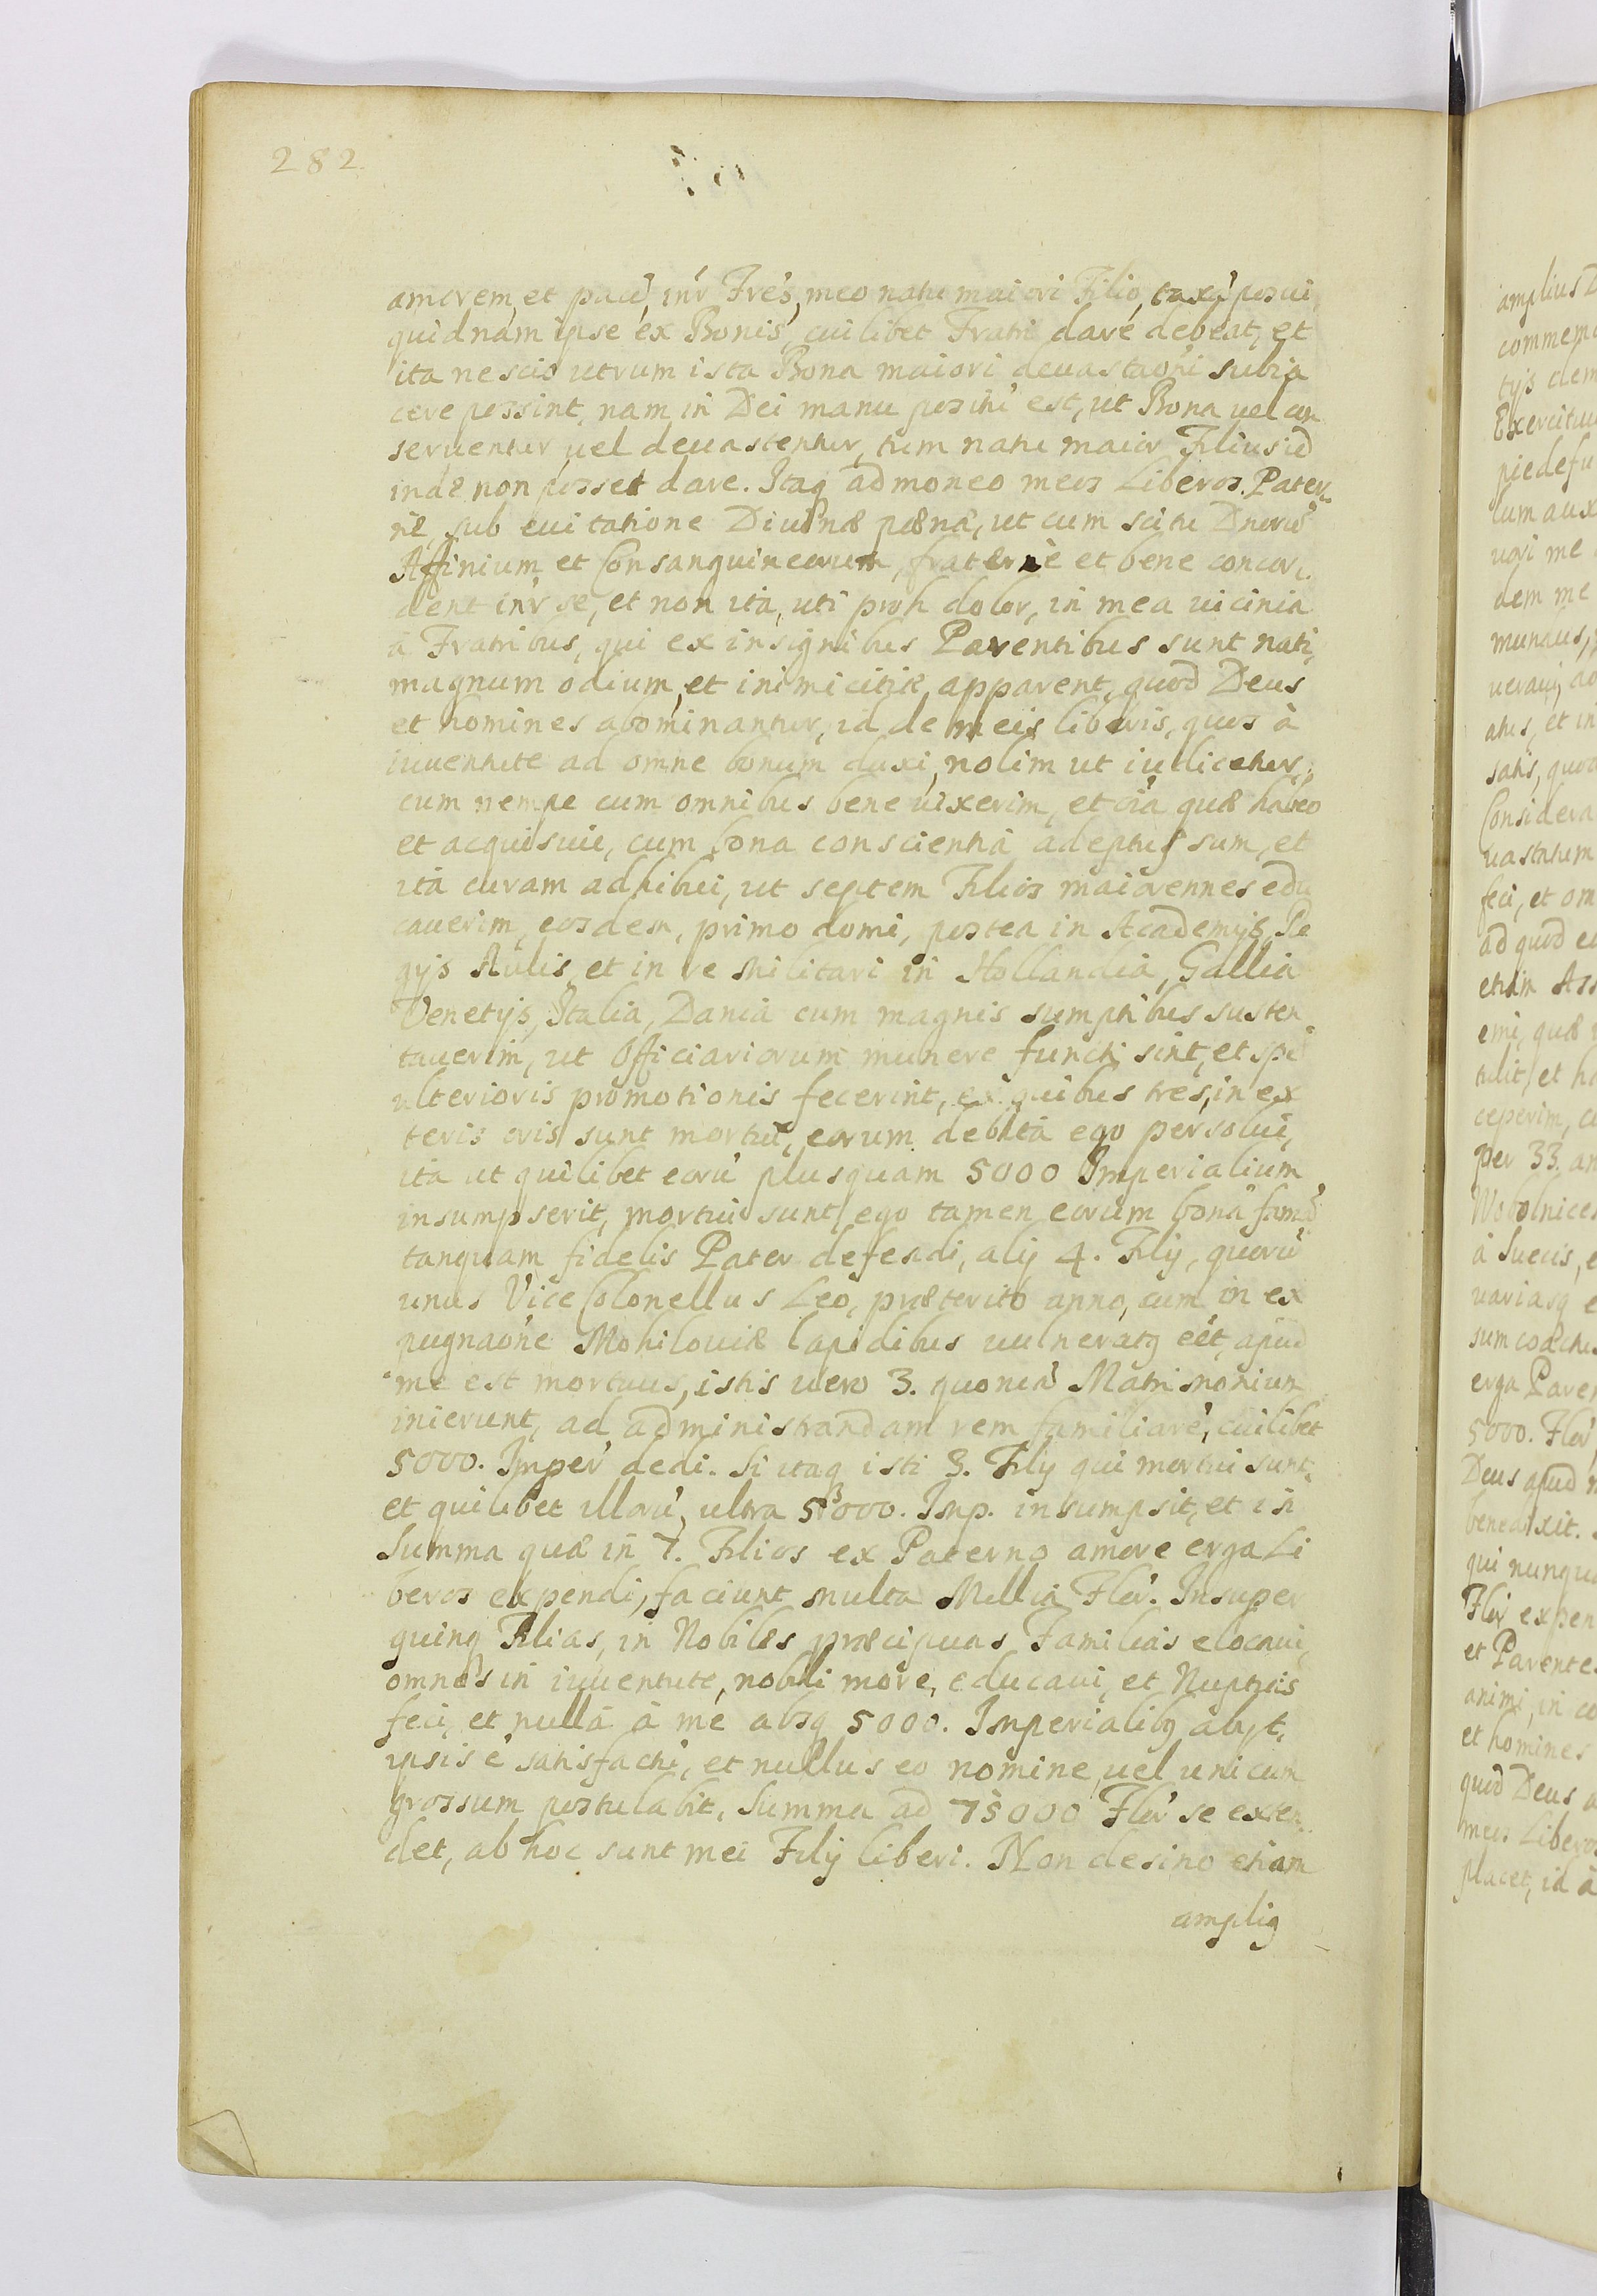 282
amorem, et pacē, inr̄ Frēs, meo natu maiori Filio, taxā posui,
quidnam ipse ex Bonis, cuilibet Fratri dare debeat, et
ita nescio utrum ista Bona maiori deuastaōni subia
cere possint, nam in Dei manu positū est, ut Bona uel con
seruentur, uel deuastentur, tum natu maior Filius id
inde non posset dare. Itaq admoneo meos Liberos. Pater,
nè, sub euitatione Diuinæ pœnæ, ut cum scitu Dnorū
Affinium et Consanguineorum, fraternè et bene concor,
dent inr̄ se, et non ita, uti proh dolor, in mea uicinia
à Fratribus, qui ex insignibus Parentibus sunt nati,
magnum odium, et inimicitiæ, apparent, quod Deus
et homines abominantur, id de meis liberis, quos à
iuuentute ad omne bonum duxi, nolim ut iudicetur,
cum nempe cum omnibus bene uixerim, et oīa quæ habeo
et acquisiui, cum bona conscientia adeptus sum, et
ita curam adhibui, ut septem Filios maiorennes edu
cauerim, eosdem, primo domi, postea in Academijs, Re
gijs Aulis, et in re Militari in Hollandia, Gallia
Venetijs, Italia, Dania cum magnis sumptibus susten
tauerim, ut Officiariorum munere functi sint, et spē
ulterioris promotionis fecerint, ex quibus tres, in ex
teris oris sunt mortui, eorum debita ego persolui,
ita ut quilibet eorū plusquam 5000 Imperialium
insumpserit, mortui sunt, ego tamen eorum bonā famā
tanquam fidelis Pater defendi, alij 4. Filij, quorū
unus Vice Colonellus Leo, præterito anno, cum in ex
pugnaōne Mohilouiæ lapidibus uulneratq eēt, apud
me est mortuus, istis uero 3. quoniā Matrimonium
inierunt, ad administrandam rem familiarē, cuilibet
5000. Imper̄ dedi. Si itaq isti 3. Filij qui mortui sunt,
et quilibet illorū, ultra 5000. Imp. insumpsit, et isti
Summa quæ in 7. Filios ex Paterno amore erga Li
beros expendi, faciunt multa Millia Flor̄. Insuper
quinq Filias, in Nobiles præcipuas Familias elocaui,
omnes in iuuentute, nobili more, educaui, et Nuptias
feci, et nulla à me absq 5000. Imperialibq abijt,
ipsis ē satisfactū, et nullus eo nomine, uel unicum
grossum postulabit, Summa ad 75000 Flor̄ se exten,
det, ab hoc sunt mei Filij liberi. Non desino etiam
ampliq
amplius
tijs dem
Exercituu
piedefu
lum aux
uori me
dem me
munaus,
uerauj, ad
atus, et in
satis, quod
Considera
uastatum
feci, et om
ad quod eu
etiam Ass
emi, quæ
tulit, et ha
ceperim, cu
per 33. an
Wobolnice
à Suecis, e
uariasq e
sum coactu
erga Paren
5000. Flor̄
Deus apud m
benedixit.
qui nunqua
Flor̄ expen
et Parente
animi, in co
et homines
quod Deus a
meos Liberos
placet, id à